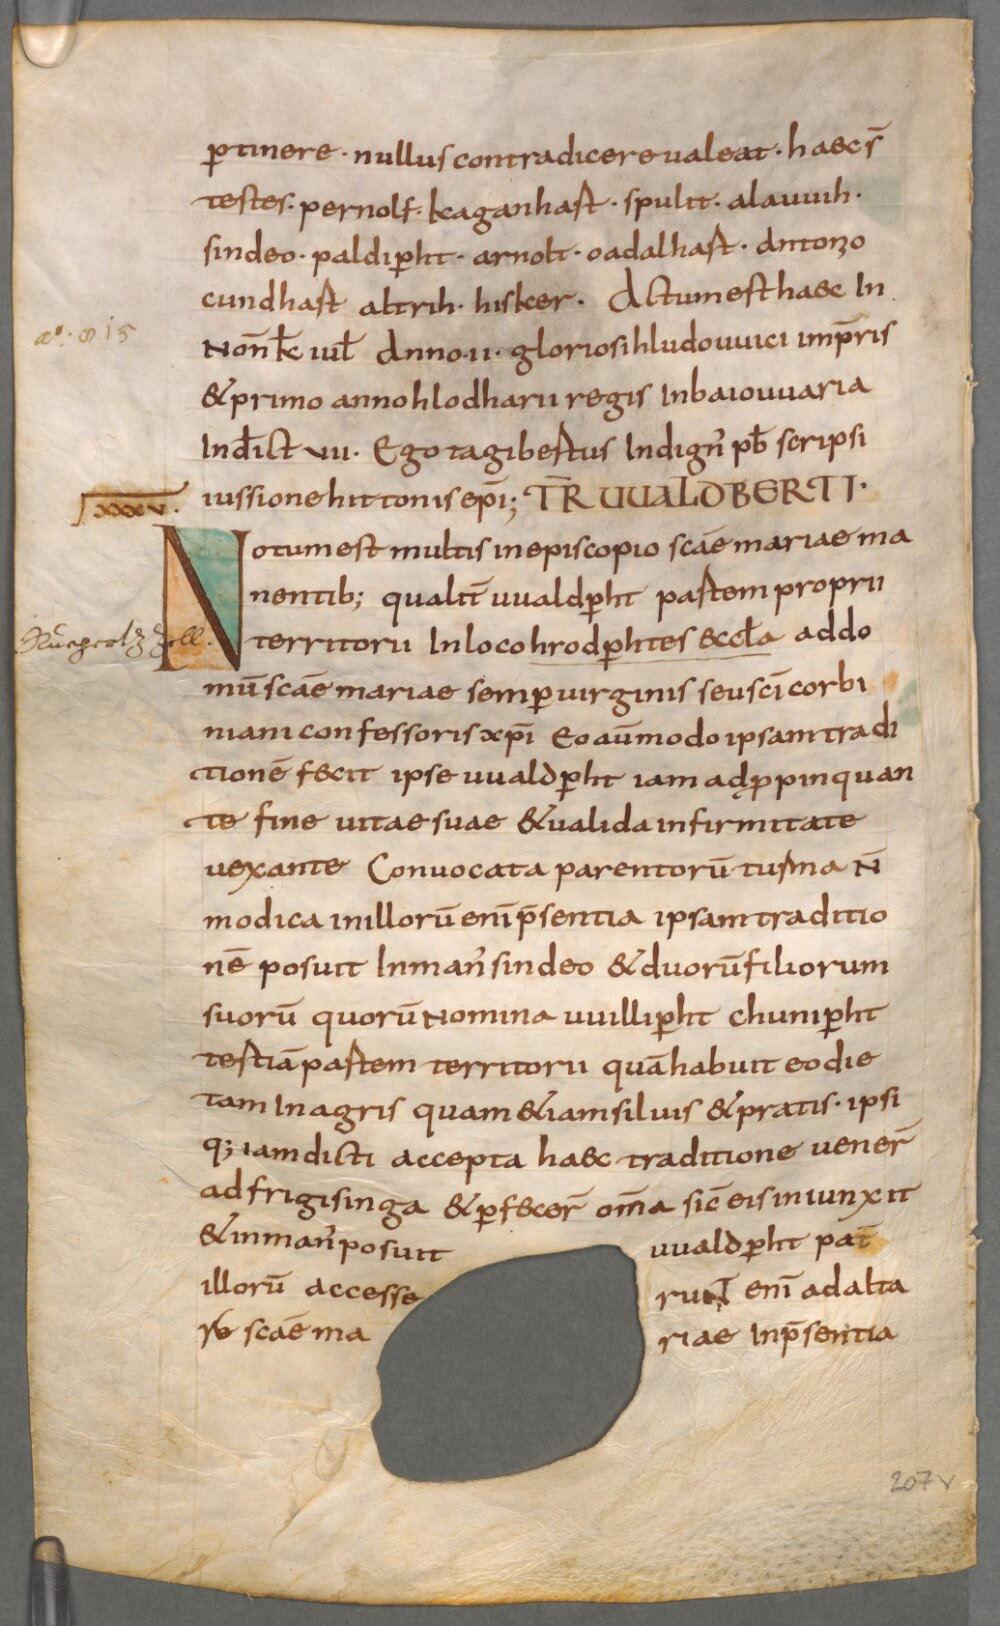 ꝑtinere · nullus contradicere ualeat · haec s̄
testes · pernolf · kaganhast · spulit · alauuih ·
sindeo · paldiꝑht · arnolt · oadalhast · antonzo
cundhast altrih · hisker · Actum est haec In
a°. 815
Noñ k̄ iul̄ Anno · ii · gloriosi hludouuici imp̄ris
& primo anno hlodharii regis In baiouuaria
Ind̄ict vii · Ego tagibertus Indign̄ pb̄ scripsi
iussione hittonis ep̄i; TR̄ UUALDBERTI ·
XXXV.
Notum est multis in episcopio sc̄ae mariae ma
nentib; qualit̄ uualdꝑht partem proprii
territorii In loco hrodꝑhtes eccl̄a ad do
mū sc̄ae mariae semꝑ uirginis seu sc̄i corbi
niani confessoris xp̄i Eo aūmodo ipsam tradi
tionē fecit ipse uualdꝑht iam adꝓpinquan
te fine uitae suae & ualida infirmitate
uexante Conuocata parentorū turma N̄
modica in illorū eni p̄sentia ipsam traditio
nē posuit In man̄ sindeo & duorū filiorum
suorū quorū Nomina uuilliꝑht chuniꝑht
testiā partem territorii quā habuit eo die
tam In agris quam &iam siluis & pratis · ipsi
q; iam dicti accepta haec traditione uener̄
ad frigisinga & ꝑfecer̄ om̄a sic̄ eis iniunxit
& in man̄ posuit uualdꝑht pat̄
illorū accesserunt eni ad alta
rē sc̄ae mariae In p̄sentia
207v